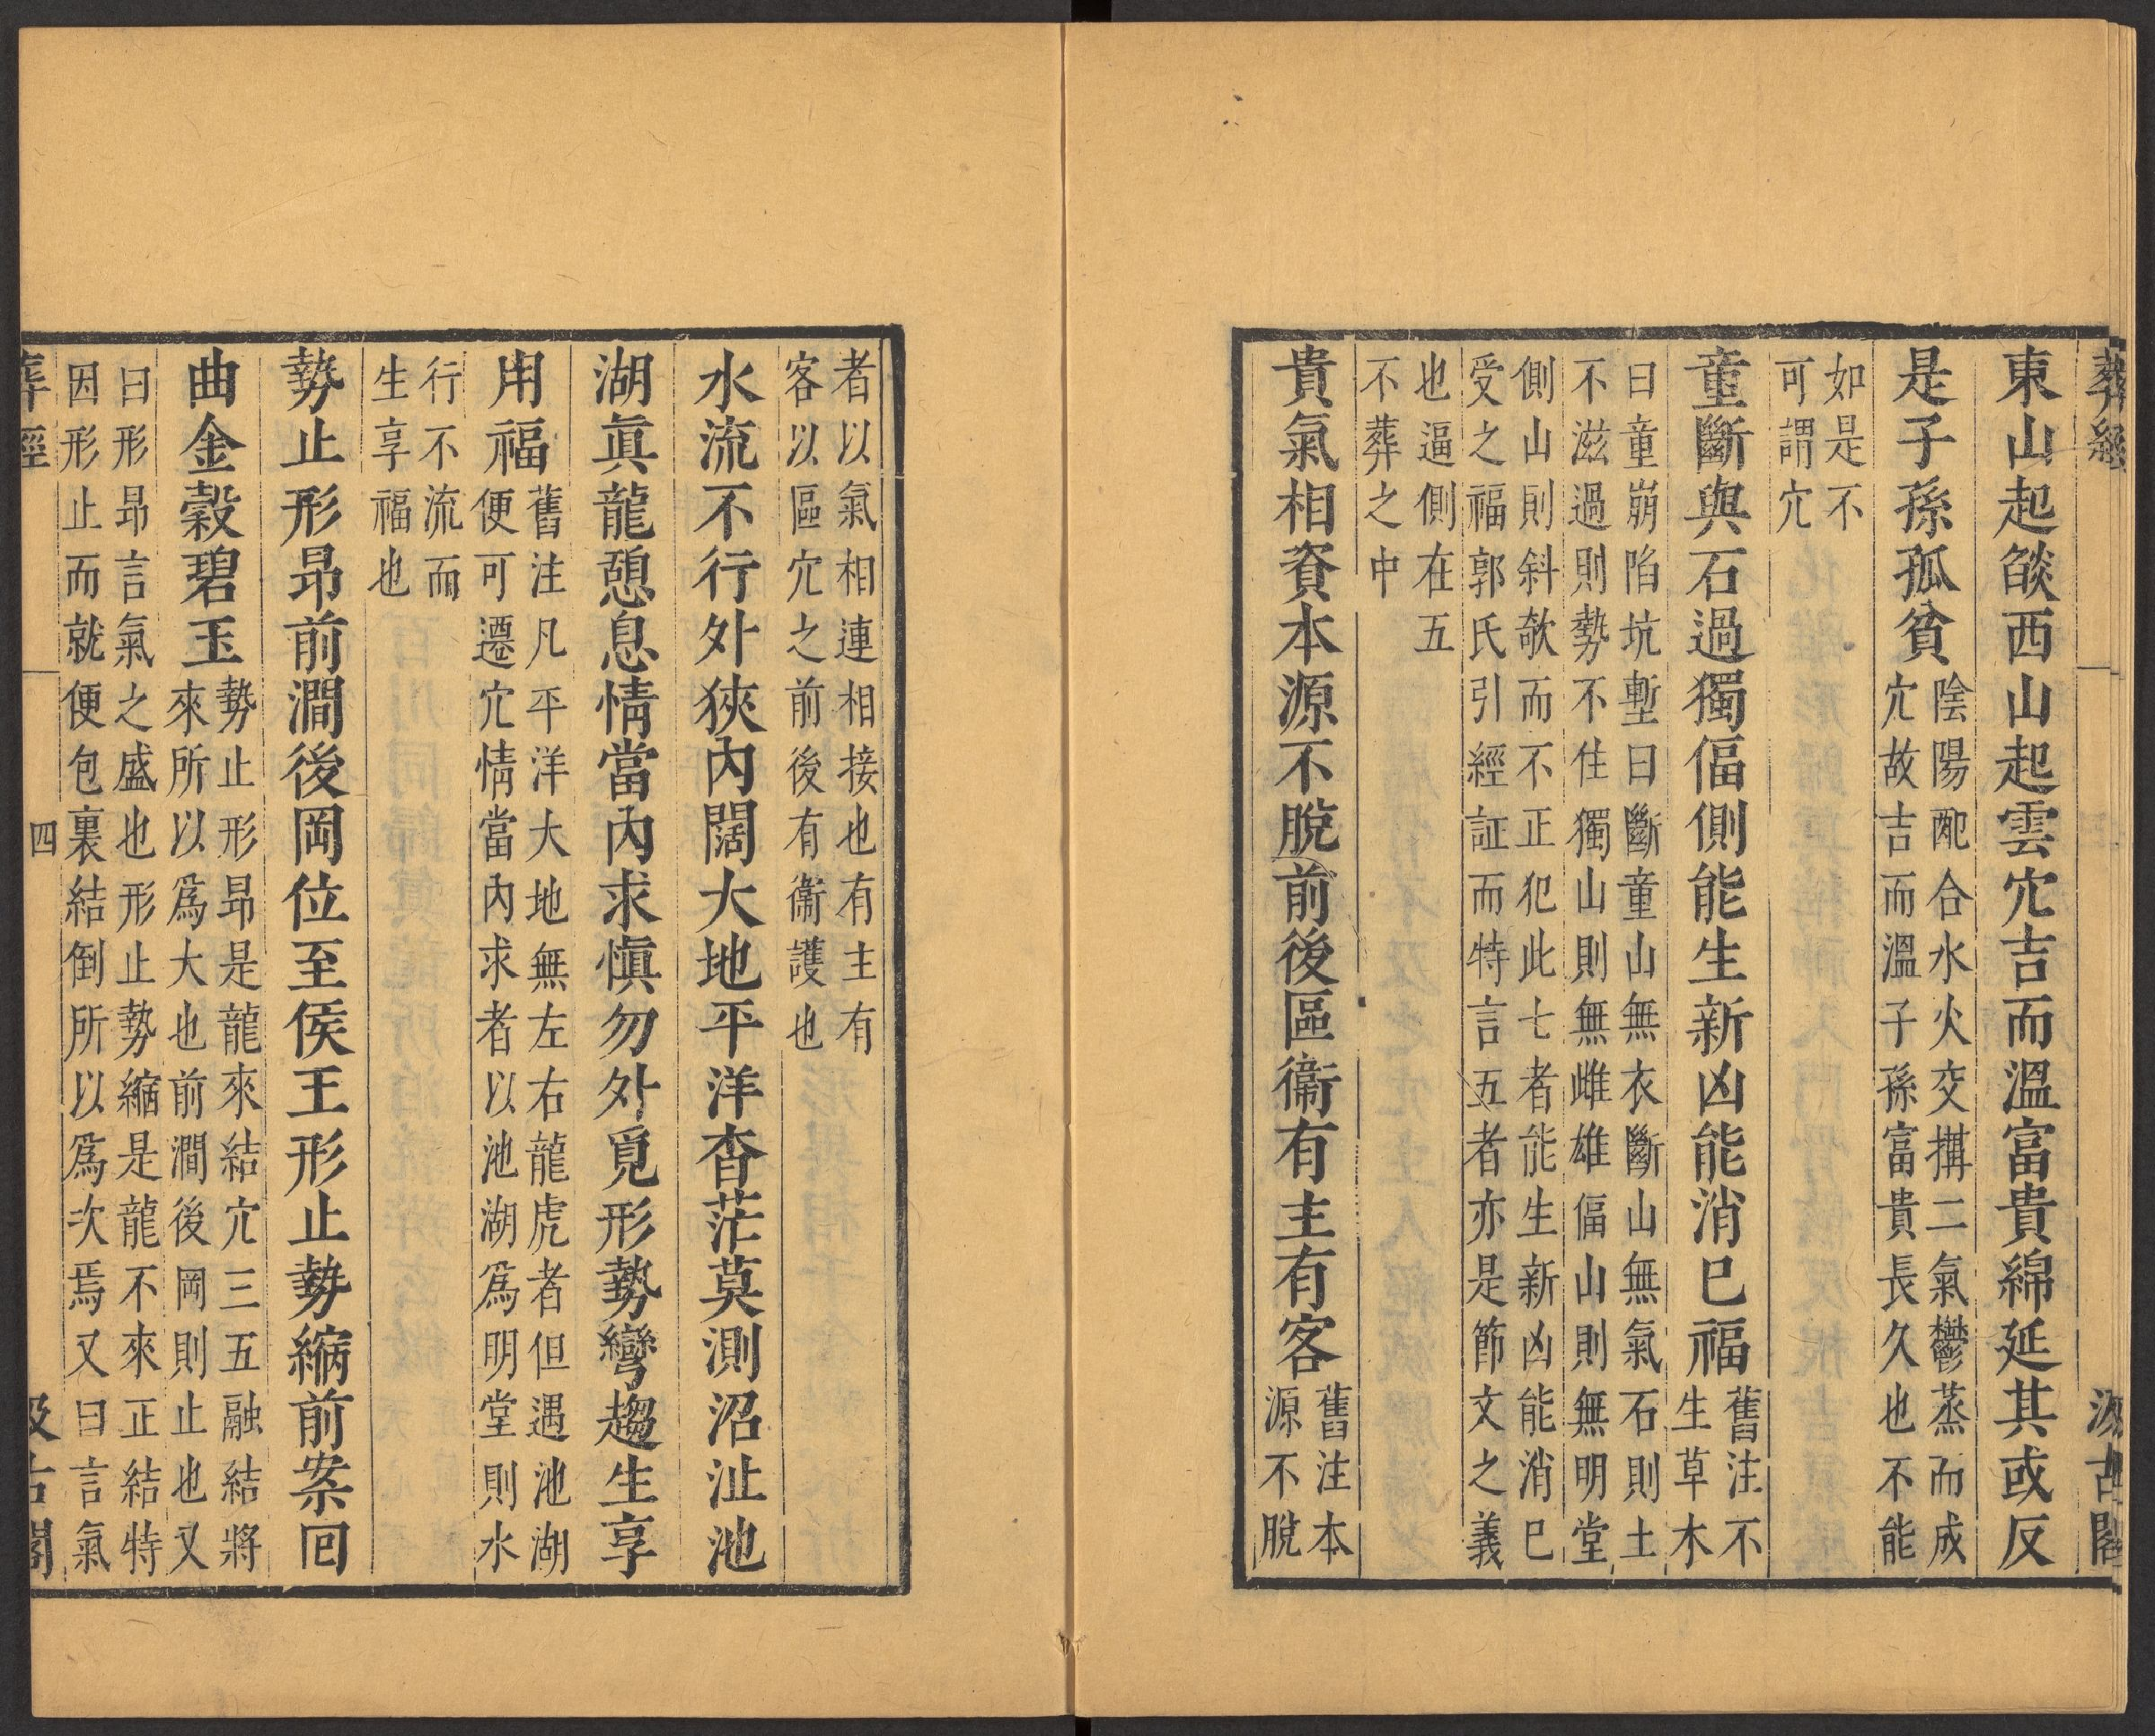 葬經
汲古閣
東山起燄西山起雲穴吉而溫富貴綿延其或反
是子孫孤貧
陰陽配合水火交搆二氣鬱蒸而成
穴故吉而溫子孫富貴長久也不能
如是不
可謂穴
童斷與石過獨偪側能生新凶能消已福
舊注不
生草木
曰童崩陷坑塹曰斷童山無衣斷山無氣石則土
不滋過則勢不住獨山則無雌雄偪山則無明堂
側山則斜欹而不正犯此七者能生新凶能消已
受之福郭氏引經証而特言五者亦是節文之義
也逼側在五
不葬之中
貴氣相資本源不脫前後區衞有主有客
舊注本
源不脫
者以氣相連相接也有主有
客以區穴之前後有衞護也
水流不行外狹內闊大地平洋杳茫莫測沼沚池
湖眞龍憩息情當內求愼勿外覓形勢彎趨生享
用福
舊注凡平洋大地無左右龍虎者但遇池湖
便可遷穴情當內求者以池湖爲明堂則水
行不流而
生享福也
勢止形昻前澗後岡位至侯王形止勢縮前案回
曲金穀碧玉
勢止形昻是龍來結穴三五融結將
來所以爲大也前澗後岡則止也又
曰形昻言氣之盛也形止勢縮是龍不來正結特
因形止而就便包裏結倒所以爲次焉又曰言氣
葬經
四
汲古閣